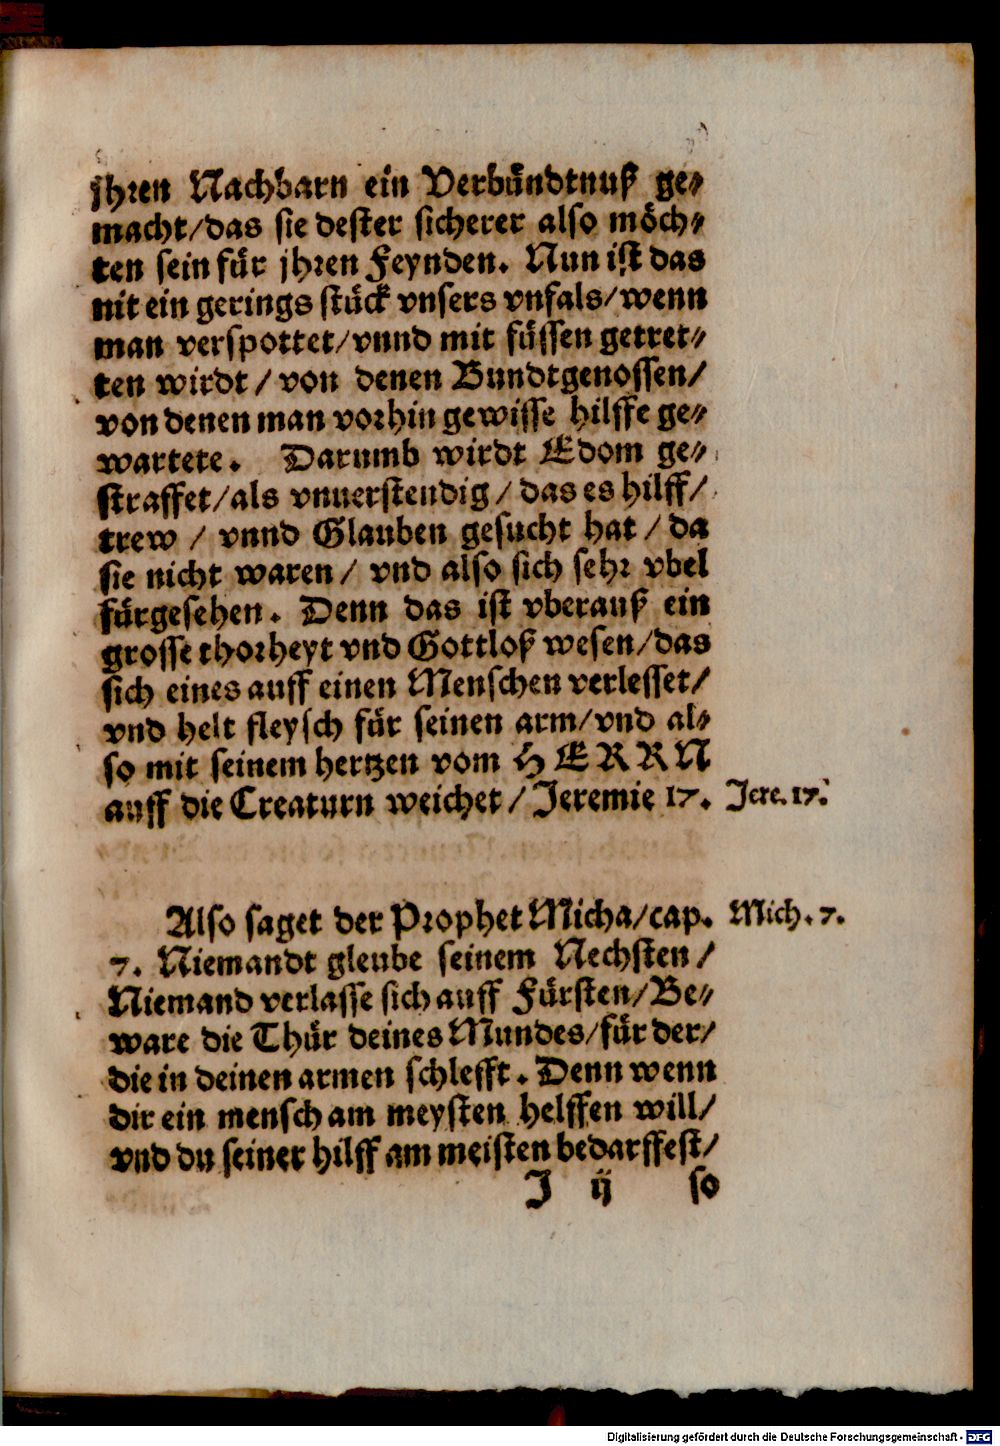 jhren Nachbarn ein Verbündtnuß ge-
macht/das sie dester sicherer also möch-
ten sein für jhren Feynden. Nun ist das
nit ein gerings stück vnsers vnfals/wenn
man verspottet/vnnd mit füssen getret-
ten wirdt / von denen Bundtgenossen/
von denen man vorhin gewisse hilffe ge-
wartete. Darumb wirdt Edom ge-
straffet/als vnuerstendig / das es hilff/
trew / vnnd Glauben gesucht hat / da
sie nicht waren / vnd also sich sehr vbel
fürgesehen. Denn das ist vberauß ein
grosse thorheyt vnd Gottloß wesen/das
sich eines auff einen Menschen verlesset/
vnd helt fleysch für seinen arm/vnd al-
so mit seinem hertzen vom HERRN
auff die Creaturn weichet / Jeremie 17. Jere. 17.
Also saget der Prophet Micha/cap. Mich. 7.
7. Niemandt gleube seinem Nechsten /
Niemand verlasse sich auff Fürsten/Be-
ware die Thür deines Mundes/für der/
die in deinen armen schlefft. Denn wenn
dir ein mensch am meysten helffen will/
vnd du seiner hilff am meisten bedarffest/
J ij so
Digitalisierung gefördert durch die Deutsche Forschungsgemeinschaft - DFG